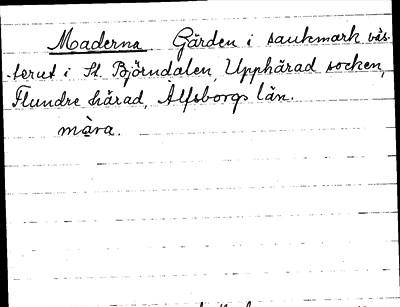 Maderna Gärden i sankmark väs-
terut i St. Björndalen, Upphärad socken,
Flundre härad, Älfsborgs län.
màra.